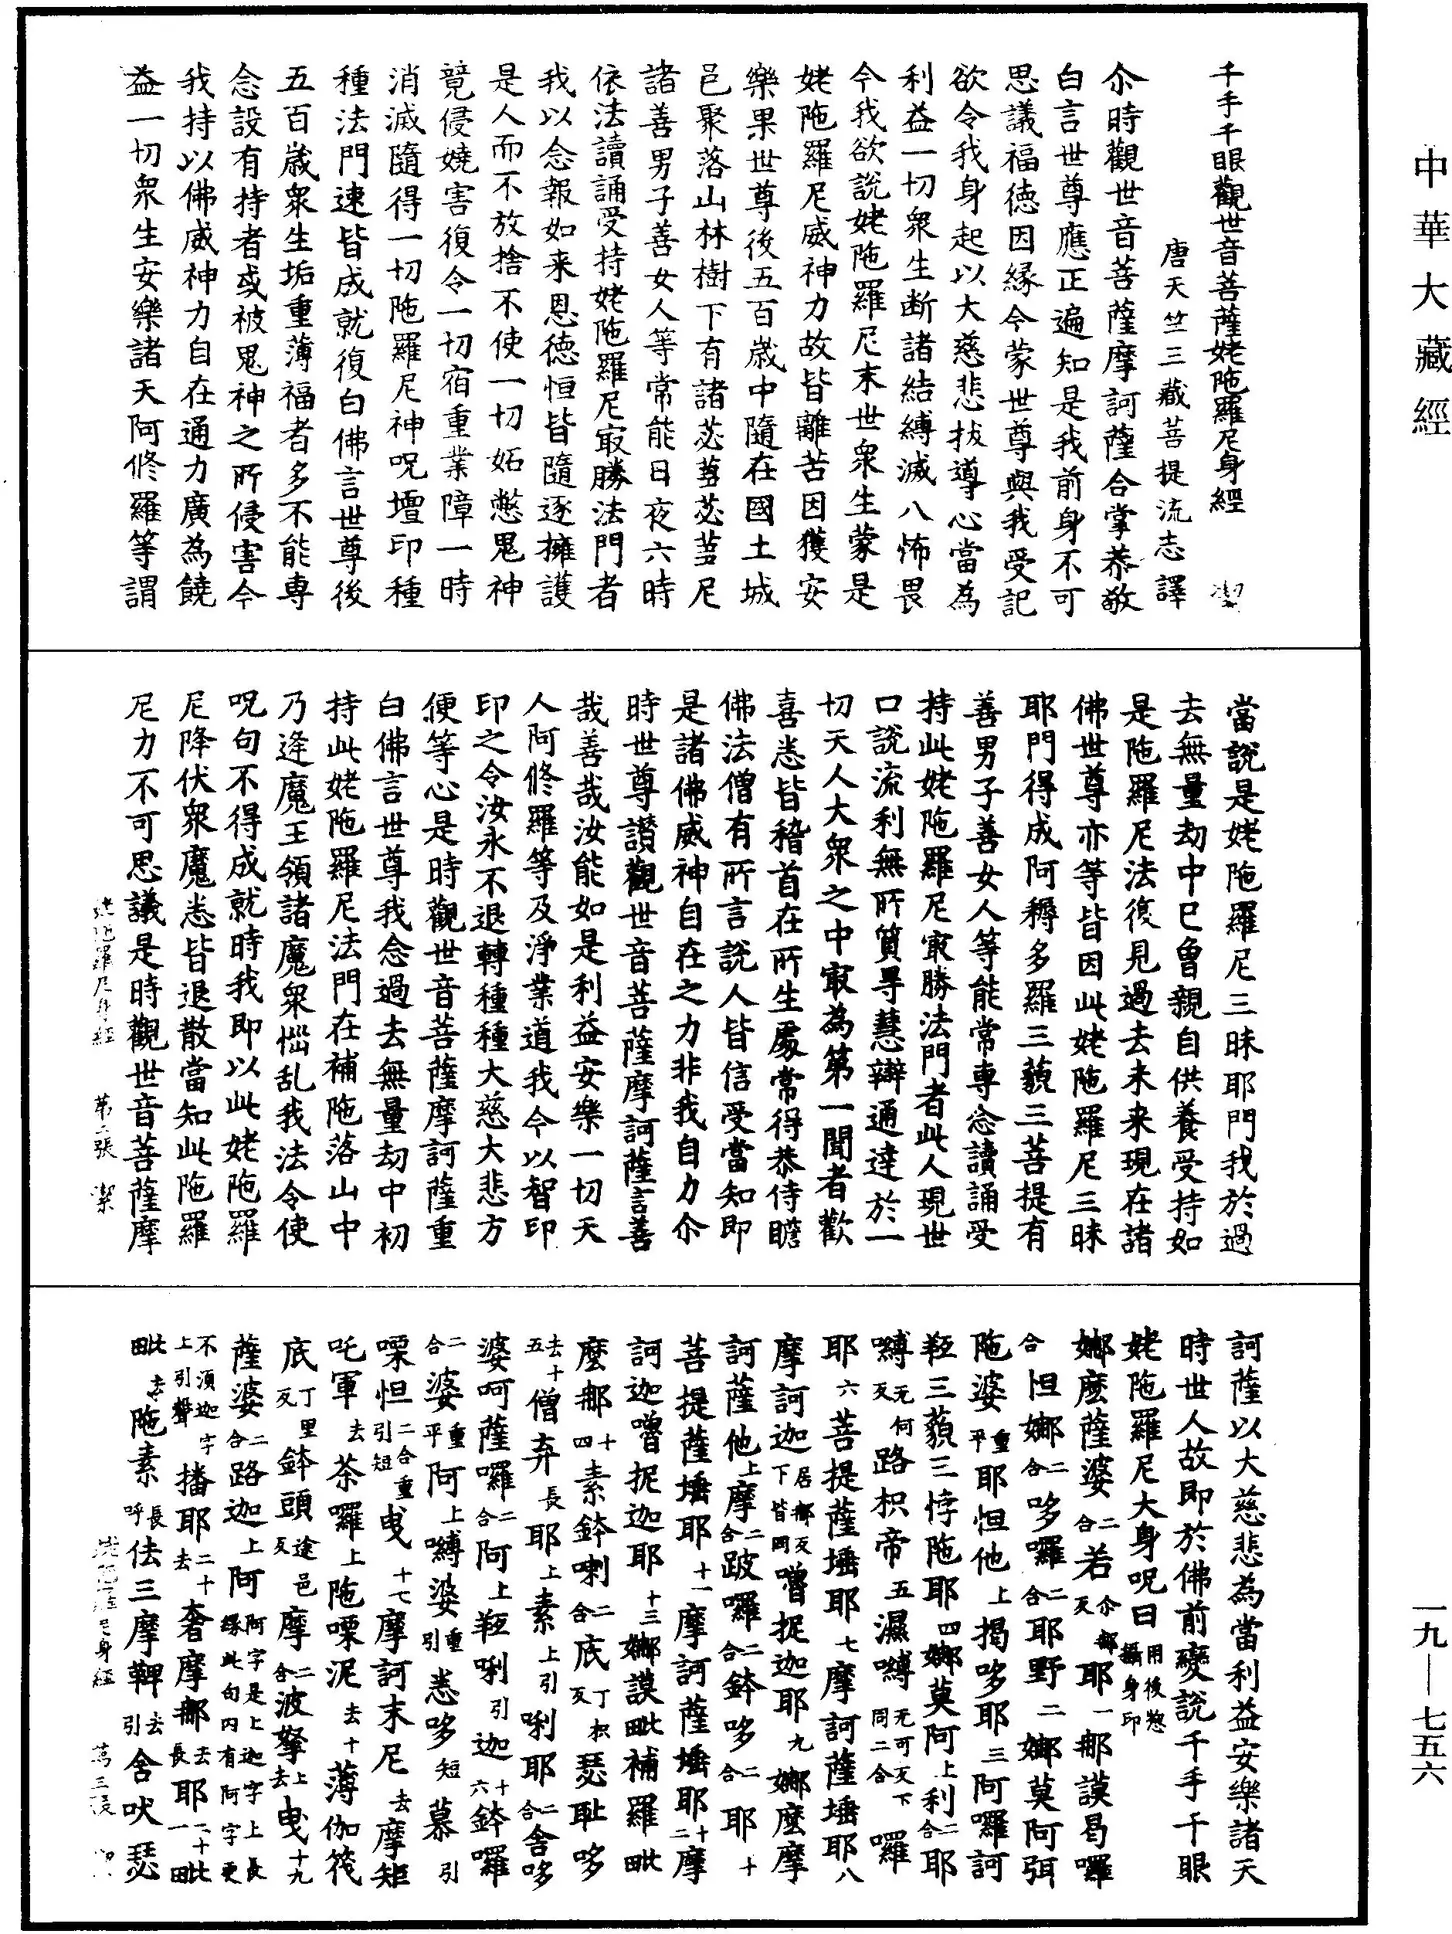 中華大藏經
一九—七五六
千手千眼觀世音菩薩姥陁羅尼身經 潔
唐天竺三藏菩提流志譯
尒時觀世音菩薩摩訶薩合掌恭敬
白言世尊應正遍知是我前身不可
思議福德因緣今蒙世尊與我受記
欲令我身起以大慈悲拔導心當為
利益一切衆生断諸結縛滅八怖畏
今我欲說姥陁羅尼末世衆生蒙是
姥陁羅尼威神力故皆離苦因獲安
樂果世尊後五百歲中隨在國土城
邑聚落山林樹下有諸苾芻苾芻尼
諸善男子善女人等常能日夜六時
依法讀誦受持姥陁羅尼㝡勝法門者
我以念報如来恩德恒皆隨逐擁護
是人而不放捨不使一切妬憋鬼神
竟侵嬈害復令一切宿重業障一時
消滅隨得一切陁羅尼神呪壇印種
種法門速皆成就復白佛言世尊後
五百歲衆生垢重薄福者多不能專
念設有持者或被鬼神之所侵害今
我持以佛威神力自在通力廣為饒
益一切衆生安樂諸天阿脩羅等謂
當說是姥陁羅尼三昧耶門我於過
去無量劫中巳曾親自供養受持如
是陁羅尼法復見過去未来現在諸
佛世尊亦等皆因此姥陁羅尼三昧
耶門得成阿耨多羅三藐三菩提有
善男子善女人等能常專念讀誦受
持此姥陁羅尼㝡勝法門者此人現世
口說流利無所質㝵慧辯通達於一
切天人大衆之中㝡為第一聞者歡
喜悉皆稽首在所生處常得恭侍瞻
佛法僧有所言說人皆信受當知即
是諸佛威神自在之力非我自力尒
時世尊讃觀世音菩薩摩訶薩言善
哉善哉汝能如是利益安樂一切天
人阿脩羅等及淨業道我今以智印
印之令汝永不退轉種種大慈大悲方
便等心是時觀世音菩薩摩訶薩重
白佛言世尊我念過去無量劫中初
持此姥陁羅尼法門在補陁落山中
乃逢魔王領諸魔衆惱乱我法令使
呪句不得成就時我即以此姥陁羅
尼降伏衆魔悉皆退散當知此陁羅
尼力不可思議是時觀世音菩薩摩
姥陁羅尼身經 第二張 潔
訶薩以大慈悲為當利益安樂諸天
時世人故即於佛前變說千手千眼
姥陁羅尼大身呪曰用後惣攝身印
娜麽薩婆二合若尒娜反耶一那謨曷囉
合怛娜二合哆囉二合耶野二娜莫阿弭
陁婆重平耶怛他上揭哆耶三阿囉訶
𩎟三藐三悖陁耶四娜莫阿上利二合耶
嚩无何反路枳帝五濕嚩无可反下同二合囉
耶六菩提薩埵耶七摩訶薩埵耶八
摩訶迦居娜反下皆同嚕捉迦耶九娜麽摩
訶薩他上摩二合跛囉二合鉢哆二合耶十
菩提薩埵耶十一摩訶薩埵耶十二摩
訶迦嚕抳迦耶十三娜謨毗補羅毗
麽那十四素鉢喇二合底丁枳反瑟耻哆
去十五僧弃長耶上素上引唎耶二合舍哆
婆呵薩囉二合阿上𩎟唎引迦十六鉢囉
二合婆重平阿上嚩婆重引悉哆短慕引
㗚怛二合重引短曳十七摩訶末尼去摩矩
吒軍去荼囉上陁㗚泥去十薄伽筏
底丁里反鉢頭途邑反摩二合波拏上去曳十九
薩婆二合路迦上阿阿字是上迦字上長緣此句内有阿字更不湏迦字上引聲播耶去二十奢摩那去長耶二十一毗
毗去陁素長呼佉三摩鞞去引舍吠瑟
姥陁羅尼身經 第三張